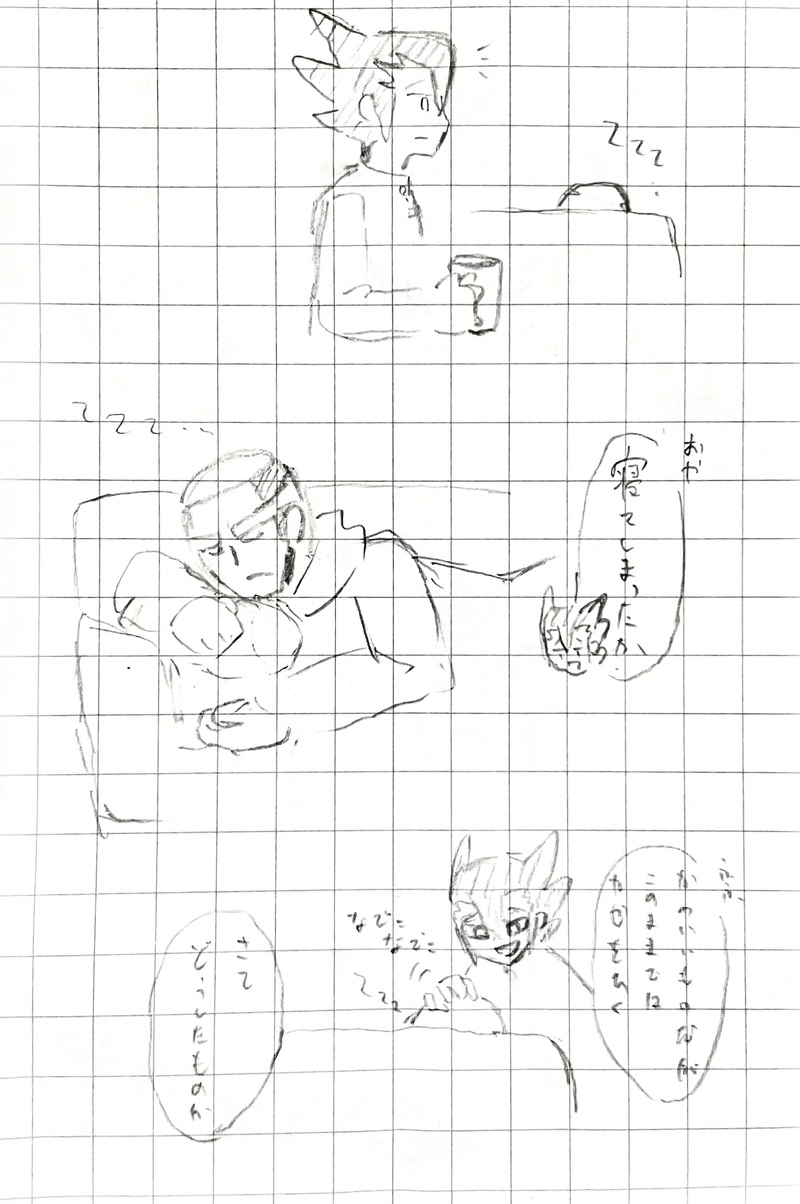 zzz
zzz...
おや
寝てしまったか、
ふふ
かわいいものだが
このままでは
かぜをひく
なでこ
なでこ
zzz
さて
どうしたものか